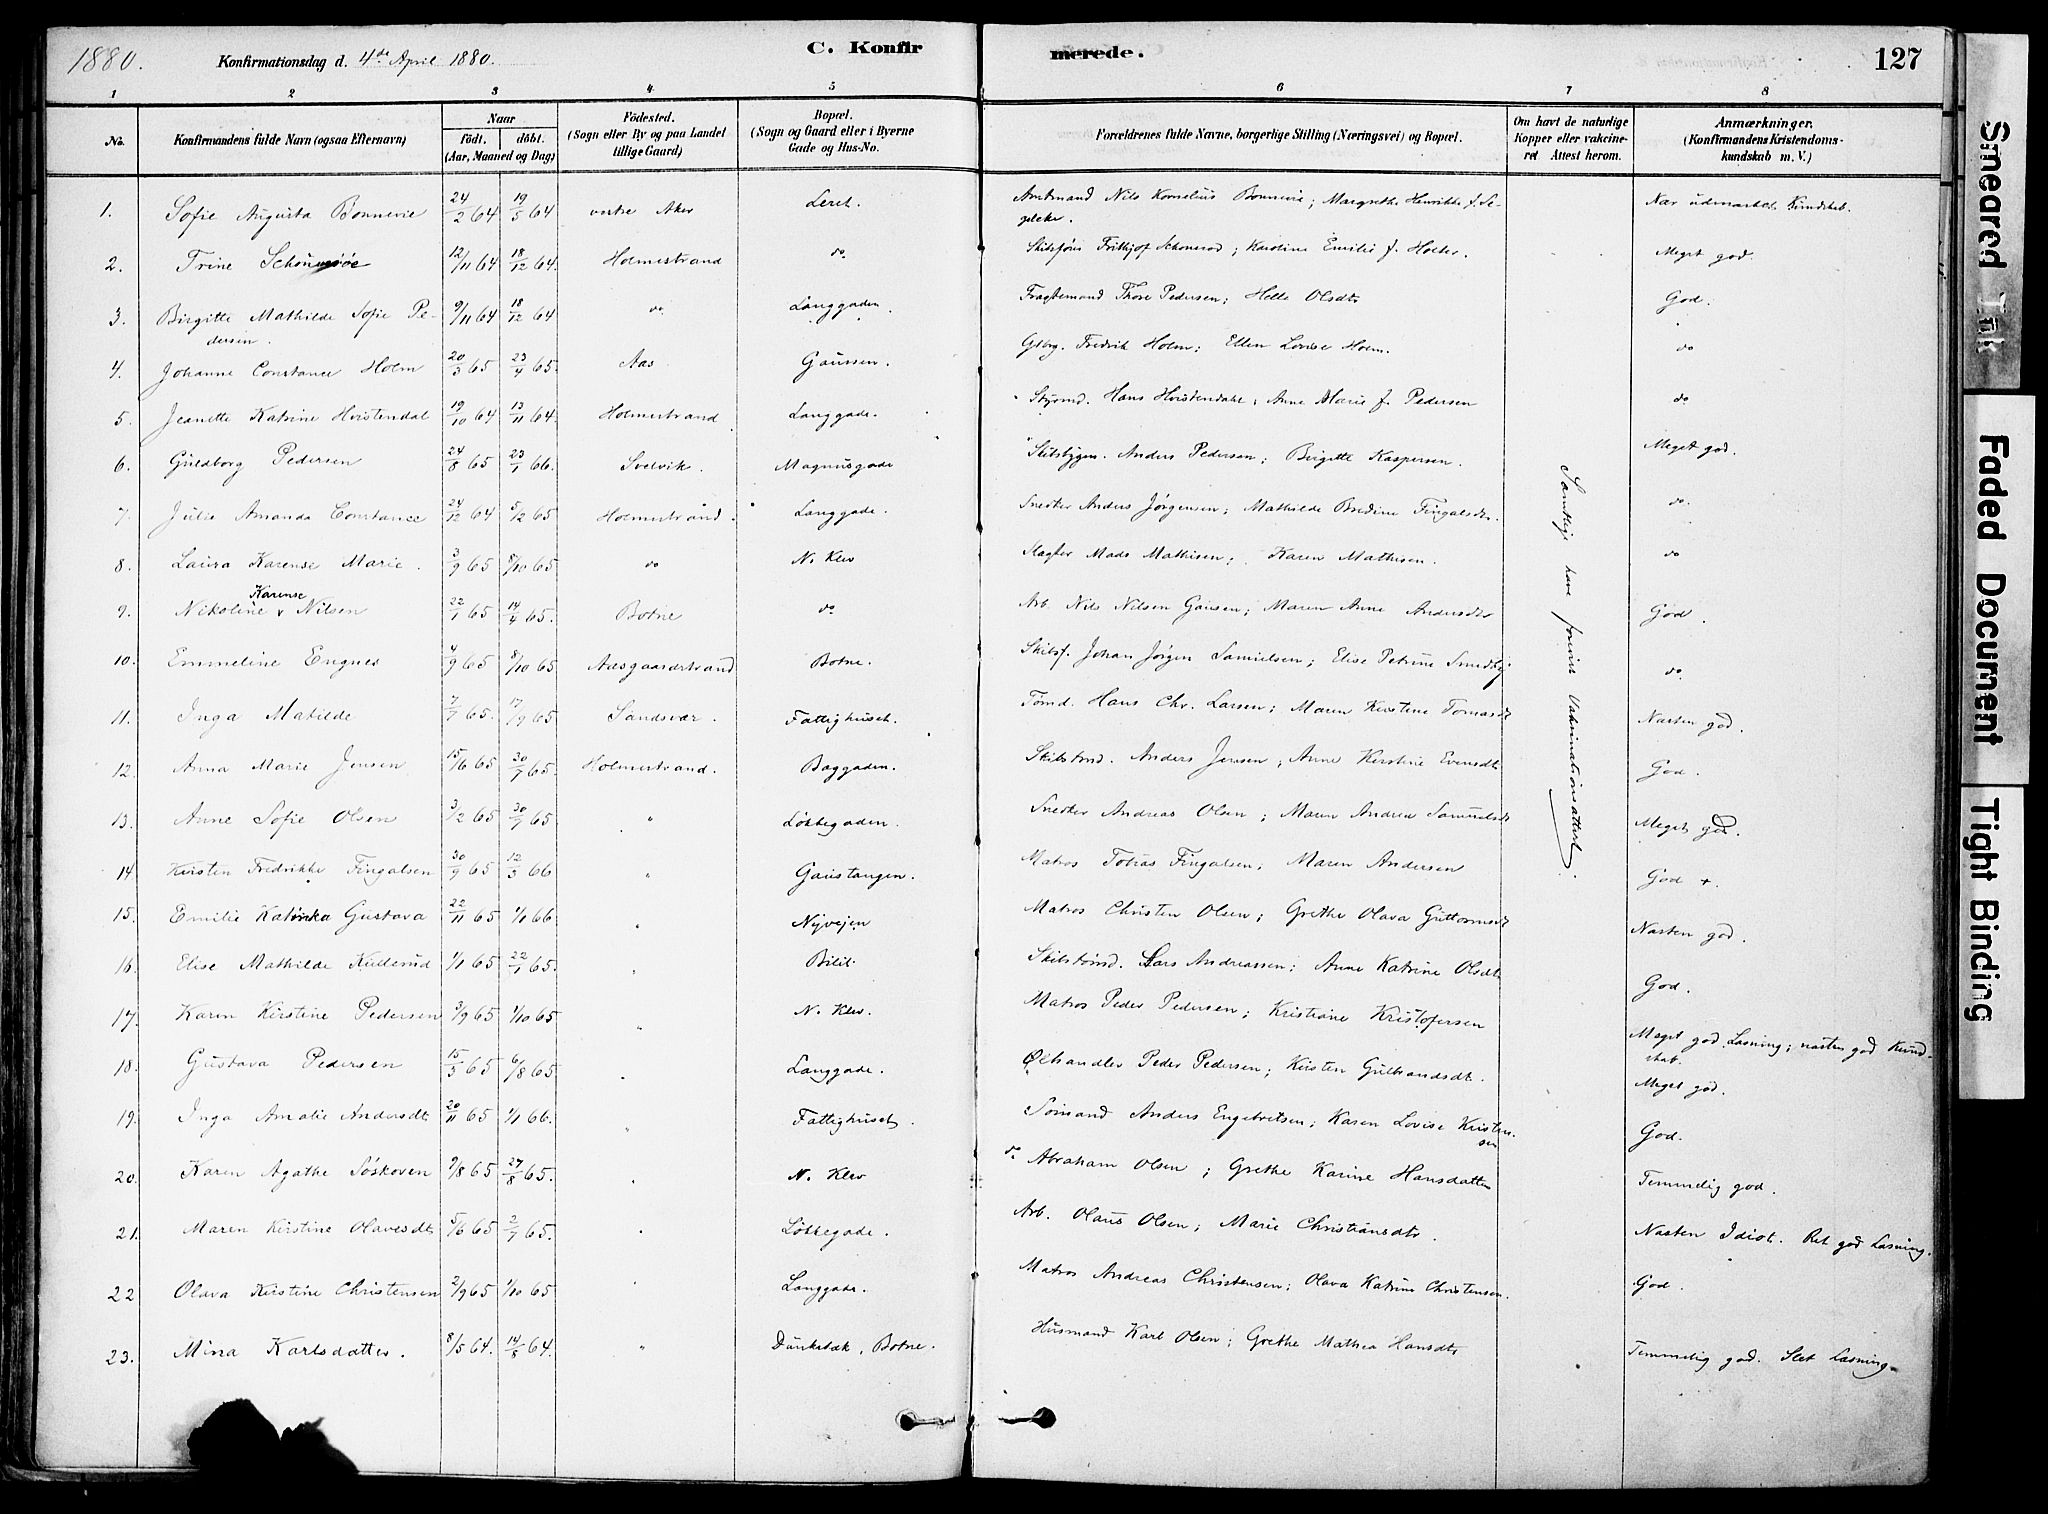 1880. Konfirmationsdag d. 4de April 1880. C. Konfirmerede. 127
1 2 3 4 5 6 7 8
No. Konfirmandens fulde Navn (ogsaa Efternavn) Naar födt. döbt. (Aar, Maaned og Dag) Födested. (Sogn eller By og paa Landet tillige Gaard) Bopæl. (Sogn og Gaard eller i Byerne Gade og Hus-No. Forældrenes fulde Navne, borgerlige Stilling (Næringsvei) og Bopæl. Om havt de naturlige Kopper eller vakcineret Attest herom. Anmærkninger. (Konfirmandens Kristendomskundskab m. V.)
1. Sofie Augusta Bonnevie 24/2 64 19/5 64 vestre Aker Leret. Amtmand Nils Kornelius Bonnevie; Margrethe Henrikke f. Segelcke. Nær udmærket Kundskab.
2. Trine 12/11 64 18/12 64. Holmestrand do Skibsfører Frithjof; Karoline Emilie f. Holter. Meget god.
3. Birgitte Mathilde Sofie Pedersen. 9/11 64 18/12 64 do Langgaden. Fragtemand Thore Pedersen; Helle Olsdtr God.
4. Johanne Constance Holm 20/3 65 23/4 65. Aas Gaussen. Gbrg. Fredrik Holm; Ellen Lovise Holm. do
5. Jeanette Katrine Hvistendal 19/10 64 13/11 64. Holmestrand Langgade. Styrmd. Hans Hvistendahl, Anne Marie f. Pedersen do
6. Guldborg Pedersen 24/8 65 23/1 66. Svelvik. Magnusgade Skibsbygm. Anders Pedersen; Birgitte Kaspersen. Meget god.
7. Julie Amanda Constance 24/12 64 5/2 65 Holmestrand. Langgade. Snedker Anders Jørgensen; Mathilde Bredine Fingalsdr. do
8. Laura Karense Marie. 3/9 65 8/10 65 do N. Klev Slagter Mads Mathisen; Karen Mathisen. do
9. Nikoline Karense Nilsen 22/1 65 14/4 65. Botne do Arb. Nils Nilsen Gausen; Maren Anne Andersdtr God.
10. Emmeline Engnes 4/9 65 8/10 65 Aasgaardstrand Botne. Skibsf. Johan Jørgen Samuelsen; Elise Petrine Smedby do
11. Inga Matilde 7/7 65. 17/9 65 Sandsvær. Fattighuset. Tømd. Hans Chr. Larsen; Maren Kirstine Tomasdt Næsten god.
12. Anna Marie Jensen 15/6 65 30/7 65. Holmestrand. Baggaden. Skibstmd. Anders Jensen; Anne Kirstine Evensdt God.
13. Anne Sofie Olsen 3/2 65 30/7 65 " Løkkegaden. Snedker Andreas Olsen; Maren Andrea Samuelsdt Meget god.
14 Kirsten Fredrikke Fingalsen 30/9 65 12/3 66 " Gaustangen. Matros Tobias Fingalsen; Maren Andersen God +.
15. Emilie Katinka Gustava 22/11 65 1/1 66. " Nyvejen Matros Christen Olsen; Grethe Olava Guttormsdt Næsten god.
16. Elise Mathilde Kullerud 1/1 65 22/1 65. " Bilit. Skibstømd. Lars Andreassen; Anne Katrine Olsdt God.
17. Karen Kirstine Pedersen 3/9 65 1/10 65 " N. Klev. Matros Peder Pedersen; Kristiane Kristofersen Meget god Læsning; næsten god Kundskab.
18. Gustava Pedersen 15/5 65 6/8 65. " Langgade. Ølhandler Peder Pedersen; Kirsten Gulbrandsdt. Meget god.
19. Inga Amalie Andersdt 20/11 65 1/1 66. " Fattighuset. Sømand Anders Engebretsen; Karen Lovise Kristensen God.
20. Karen Agathe Søskoven 9/8 65 27/8 65. " N. Klev do Abraham Olsen; Grethe Karine Hansdatter Temmelig god.
21. Maren Kirstine Olavesdt 5/6 65 2/7 65. " Løkkegade. Arb. Olaus Olsen; Marie Christiansdtr. Næsten Idiot. Ret god Læsning.
22 Olava Kirstine Christensen 2/9 65 1/10 65 " Langgade. Matros Andreas Christensen; Olava Katrine Christensen. God.
23. Mina Karlsdatter. 8/5 64. 14/8 64. " Dunkebæk, Botne. Husmand Karl Olsen; Grethe Mathea Hansdtr Temmelig god. Slet Læsning.
Samtlige have forevist Vakcinationsattest.
Smeared Ink
Faded Document
Tight Binding